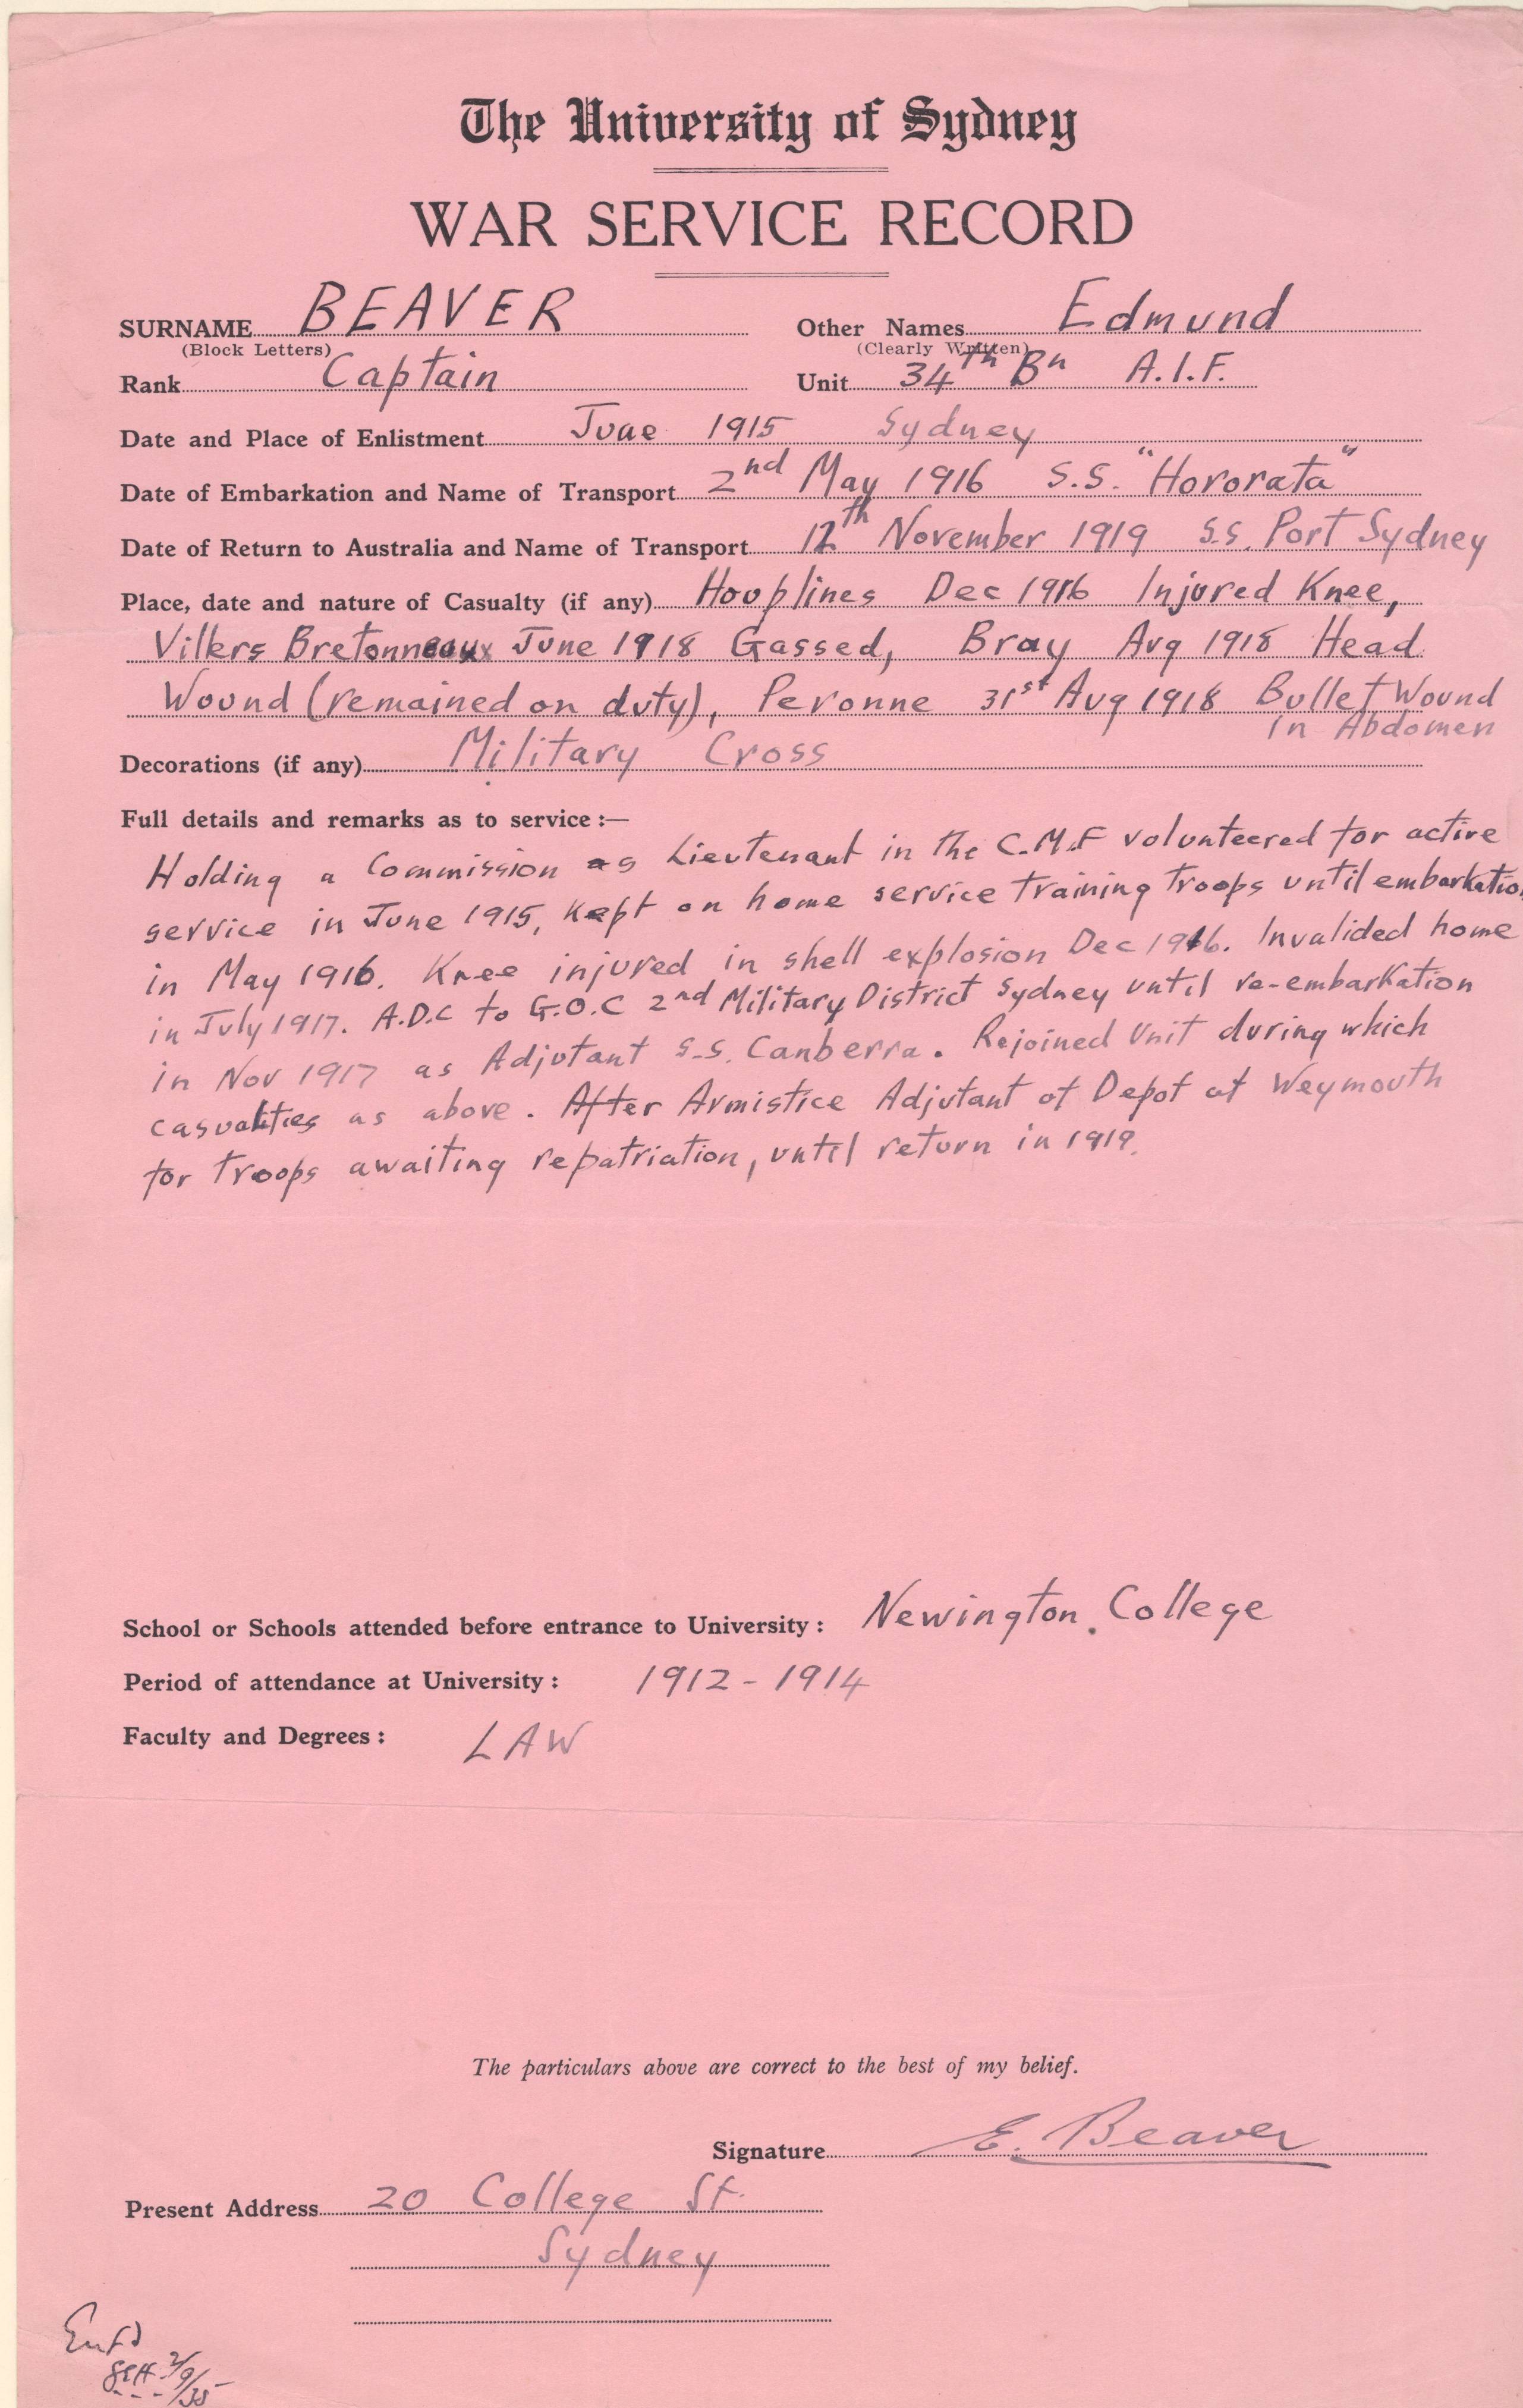 The University of Sydney
WAR SERVICE RECORD
SURNAME BEAVER Other Names Edmund
(Block Letters) (Clearly Written)
Rank Captain Unit 34th Bn A.I.F.
Date and Place of Enlistment June 1915 Sydney
Date of Embarkation and Name of Transport 2nd May 1916 S.S. "Hororata"
Date of Return to Australia and Name of Transport 12th November 1919 S.S. Port Sydney
Place, date and nature of Casualty (if any) Houplines Dec 1916 Injured Knee,
Villers Bretonneaux June 1918 Gassed, Bray Aug 1918 Head
Wound (remained on duty), Peronne 31st Aug 1918 Bullet Wound
in Abdomen
Decorations (if any) Military Cross
Full details and remarks as to service :—
Holding a Commission as Lieutenant in the C.M.F volunteered for active
service in June 1915, kept on home service training troops until embarkation
in May 1916. Knee injured in shell explosion Dec 1916. Invalided home
in July 1917. A.D.C to G.O.C 2nd Military District Sydney until re-embarkation
in Nov 1917 as Adjutant S.S. Canberra. Rejoined Unit during which
casualties as above. After Armistice Adjutant of Depot at Weymouth
for troops awaiting repatriation, until return in 1919.
School or Schools attended before entrance to University : Newington College
Period of attendance at University : 1912 - 1914
Faculty and Degrees : LAW
The particulars above are correct to the best of my belief.
Signature E. Beaver
Present Address 20 College St.
Sydney
Entd
2/9/35